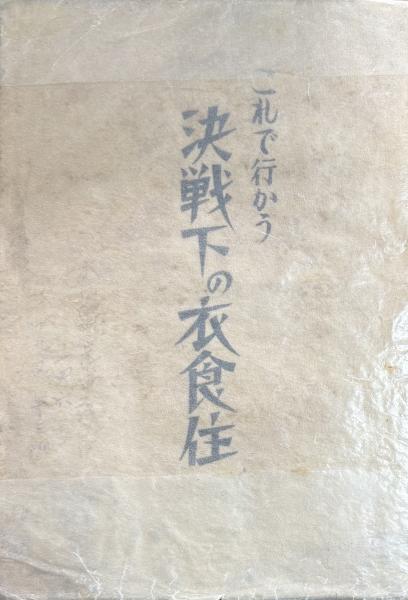 これで行かう
決戦下の衣食住